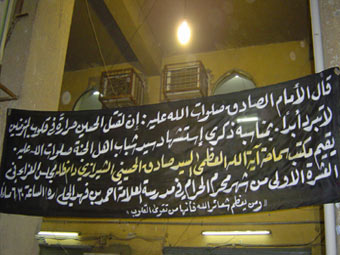 قال الأمام الصادق صلوات الله عليه: إن لقتل الحسين حرارة في قلوب المؤمنين
لا تبرد أبداً. بمناسبة ذكرى إستشهاد سيد شباب اهل الجنة صلوات الله عليه
يقيم مكتب سماحة آية الله العظمى السيد صادق الحسيني الشيرازي دام ظله مجلس العزاء في
العشرة الاولى من شهر محرم الحرام في مدرسة العلامة احمد بن فهد الحلي ره الساعة
ومن يعظم شعائر الله فانها من تقوى القلوب